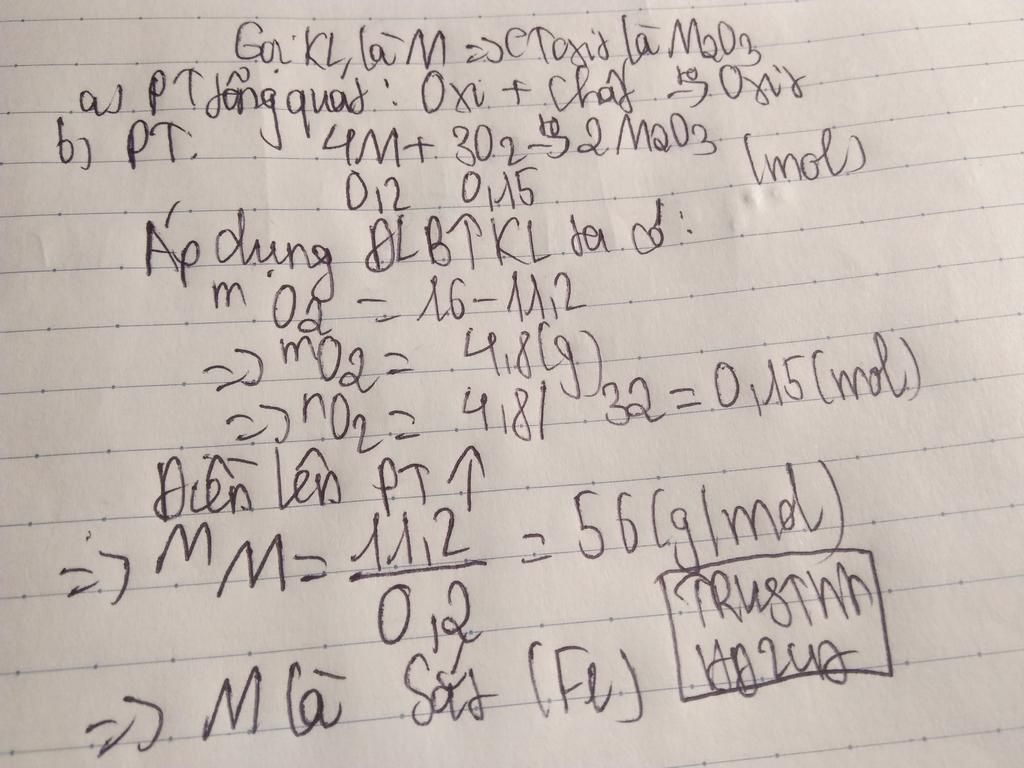 Gọi KL là M => CT oxit là M2O3
a) PT tổng quát: Oxi + Chất to→ Oxit
b) PT: 4M + 3O2 to→ 2M2O3
0,2 0,15 (mol)
Áp dụng ĐLBTKL ta có:
mO2 = 16 - 11,2
=> mO2 = 4,8(g)
=> nO2 = 4,8/32 = 0,15(mol)
Điền lên PT ↑
=> MM = 11,2/0,2 = 56(g/mol)
=> M là Sắt (Fe)